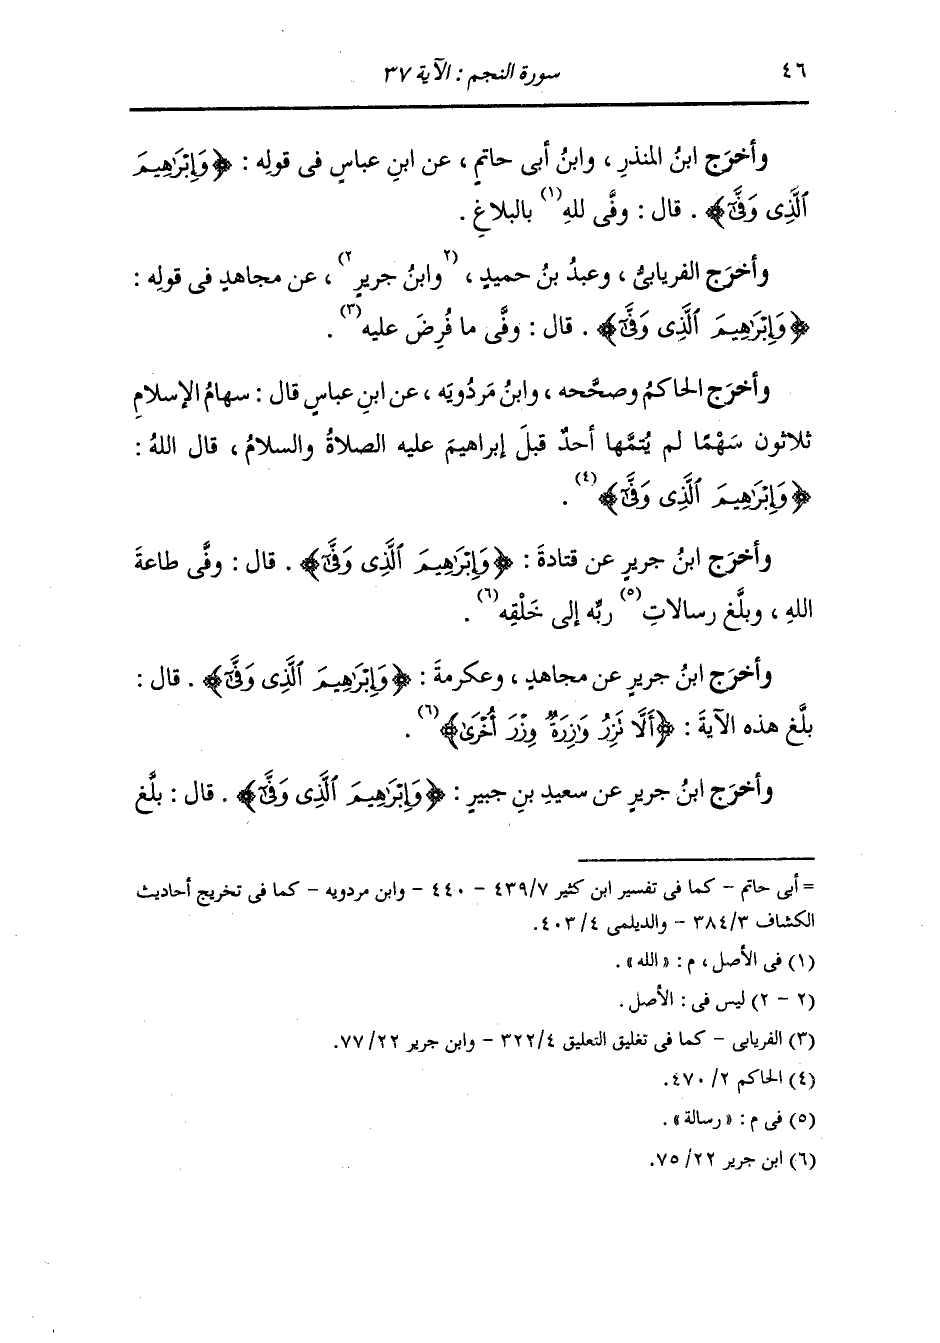 ٤٦
سورة النجم : الآية ٣٧
وأخرَج ابنُ المنذرِ ، وابنُ أبى حاتمٍ ، عن ابنِ عباسٍ فى قولِه : ﴿وَإِبْرَٰهِيمَ
ٱلَّذِى وَفَّىٰٓ﴾ . قال : وفَّى للهِ(١) بالبلاغِ .
وأخرَج الفريابىُّ ، وعبدُ بنُ حميدٍ ، (٢وابنُ جريرٍ٢) ، عن مجاهدٍ فى قولِه :
﴿وَإِبْرَٰهِيمَ ٱلَّذِى وَفَّىٰٓ﴾ . قال : وفَّى ما فُرِضَ عليه(٣) .
وأخرَج الحاكمُ وصحَّحه ، وابنُ مَردُويَه ، عن ابنِ عباسٍ قال : سهامُ الإسلامِ
ثلاثون سَهْمًا لم يُتمَّها أحدٌ قبلَ إبراهيمَ عليه الصلاةُ والسلامُ ، قال اللهُ :
﴿وَإِبْرَٰهِيمَ ٱلَّذِى وَفَّىٰٓ﴾(٤) .
وأخرَج ابنُ جريرٍ عن قتادةَ : ﴿وَإِبْرَٰهِيمَ ٱلَّذِى وَفَّىٰٓ﴾ . قال : وفَّى طاعةَ
اللهِ ، وبلَّغ رسالاتِ(٥) ربِّه إلى خَلْقِه(٦) .
وأخرَج ابنُ جريرٍ عن مجاهدٍ ، وعكرمةَ : ﴿وَإِبْرَٰهِيمَ ٱلَّذِى وَفَّىٰٓ﴾ . قال :
بلَّغ هذه الآيةَ : ﴿أَلَّا تَزِرُ وَازِرَةٌ وِزْرَ أُخْرَىٰ﴾(٦) .
وأخرَج ابنُ جريرٍ عن سعيدِ بنِ جبيرٍ : ﴿وَإِبْرَٰهِيمَ ٱلَّذِى وَفَّىٰٓ﴾ . قال : بلَّغ
= أبى حاتم - كما فى تفسير ابن كثير ٤٣٩/٧ - ٤٤٠ - وابن مردويه - كما فى تخريج أحاديث
الكشاف ٣٨٤/٣ - والديلمى ٤٠٣/٤.
(١) فى الأصل ، م : «الله» .
(٢ - ٢) ليس فى : الأصل .
(٣) الفريابى - كما فى تغليق التعليق ٣٢٢/٤ - وابن جرير ٧٧/٢٢.
(٤) الحاكم ٤٧٠/٢.
(٥) فى م : «رسالة» .
(٦) ابن جرير ٧٥/٢٢.